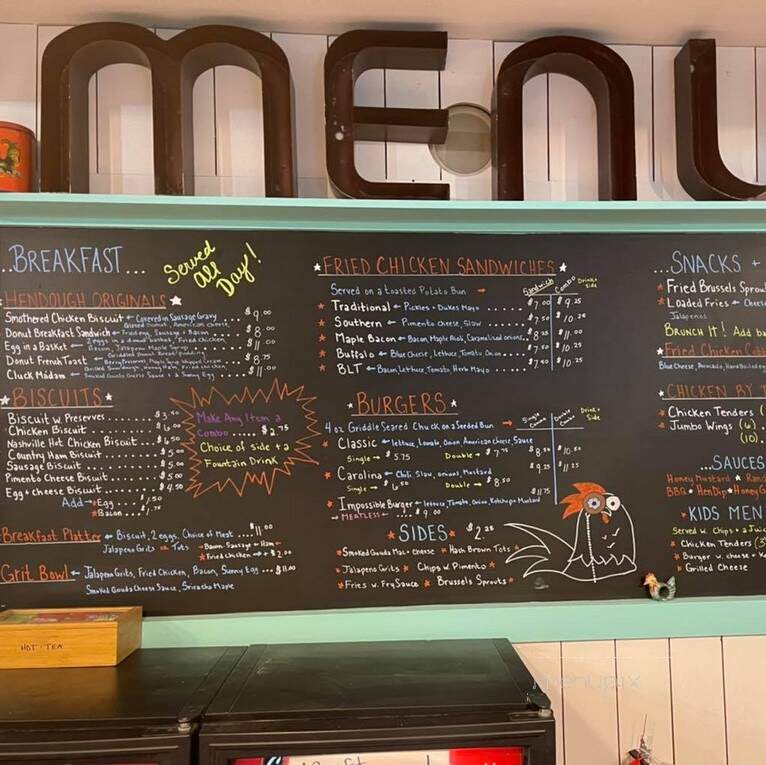 MENU
...BREAKFAST...
Served
All
Day!
HENDOUGH ORIGINALS
Smothered Chicken Biscuit ← Covered in Sausage Gravy $9.00
Donut Breakfast Sandwich ← Fried egg, Sausage + Bacon $8.00
Egg in a Basket ← 2 eggs in a donut basket, Fried chicken $11.00
Bacon, Jalapeno Maple Syrup
Donut French Toast $8.75
Cluck Madam $11.50
BISCUITS
Biscuit w Preserves... $3.50
Chicken Biscuit $6.00
Nashville Hot Chicken Biscuit... $6.50
Country Ham Biscuit
Sausage Biscuit
Pimento Cheese Biscuit
Egg + cheese Biscuit $4.50
Add → Egg $1.50
*Bacon
Make Any Item a
Combo..... $2.75
Choice of side + a
Fountain Drink
Breakfast Platter ← Biscuit, 2 eggs, Choice of Meat... $11.00
Jalapeno Grits or Tots → Bacon Sausage Ham
Fried chicken → + $2.00
Grit Bowl ← Jalapeno Grits, Fried Chicken, Bacon, Sunny Egg... $11.00
Smoked Gouda Cheese Sauce, Sriracha Maple
FRIED CHICKEN SANDWICHES
Served on a toasted Potato Bun →
Sandwich Combo Drink + Side
Traditional ← Pickles + Dukes Mayo $7.00 $9.75
Southern ← Pimento Cheese, Slaw $7.50 $10.25
Maple Bacon ← Bacon, Maple Aioli, Caramelized onions... $8.00
Buffalo ← Blue Cheese, Lettuce, Tomato, Onion $7.50 $10.25
BLT ← Bacon, Lettuce, Tomato, Herb Mayo $10.25
BURGERS
4 oz Griddle Seared Chuck on a Seeded Bun →
Single Combo Double Combo Drink + Side
Classic ← lettuce, tomato, Onion American cheese, Sauce $8.50 $10.50
Single → $5.75 Double → $7.75
Carolina ← Chili, Slaw, onions, Mustard $9.25 $11.25
Single → $6.50 Double → $8.50
Impossible Burger ← lettuce, Tomato, Onion, Ketchup + Mustard $11.75
→ MEATLESS ← $9.00
SIDES $2.25
Smoked Gouda Mac + Cheese Hash Brown Tots
Jalapeno Grits Chips w. Pimento
Fries w. Fry Sauce Brussels Sprouts
...SNACKS +
Fried Brussels Sprou
Loaded Fries ← Chees
Jalapenos
BRUNCH IT! Add ba
Fried Chicken Co
Blue Cheese, Avocado,
CHICKEN BY T
Chicken Tenders (
Jumbo Wings (6)
(10).
...SAUCES
Honey Mustard Ran
BBQ HenDip Honey G
KIDS MEN
Served w. Chips + a Juic
Chicken Tenders (3
Burger w. cheese + Ke
Grilled Cheese
HOT · TEA
menupix